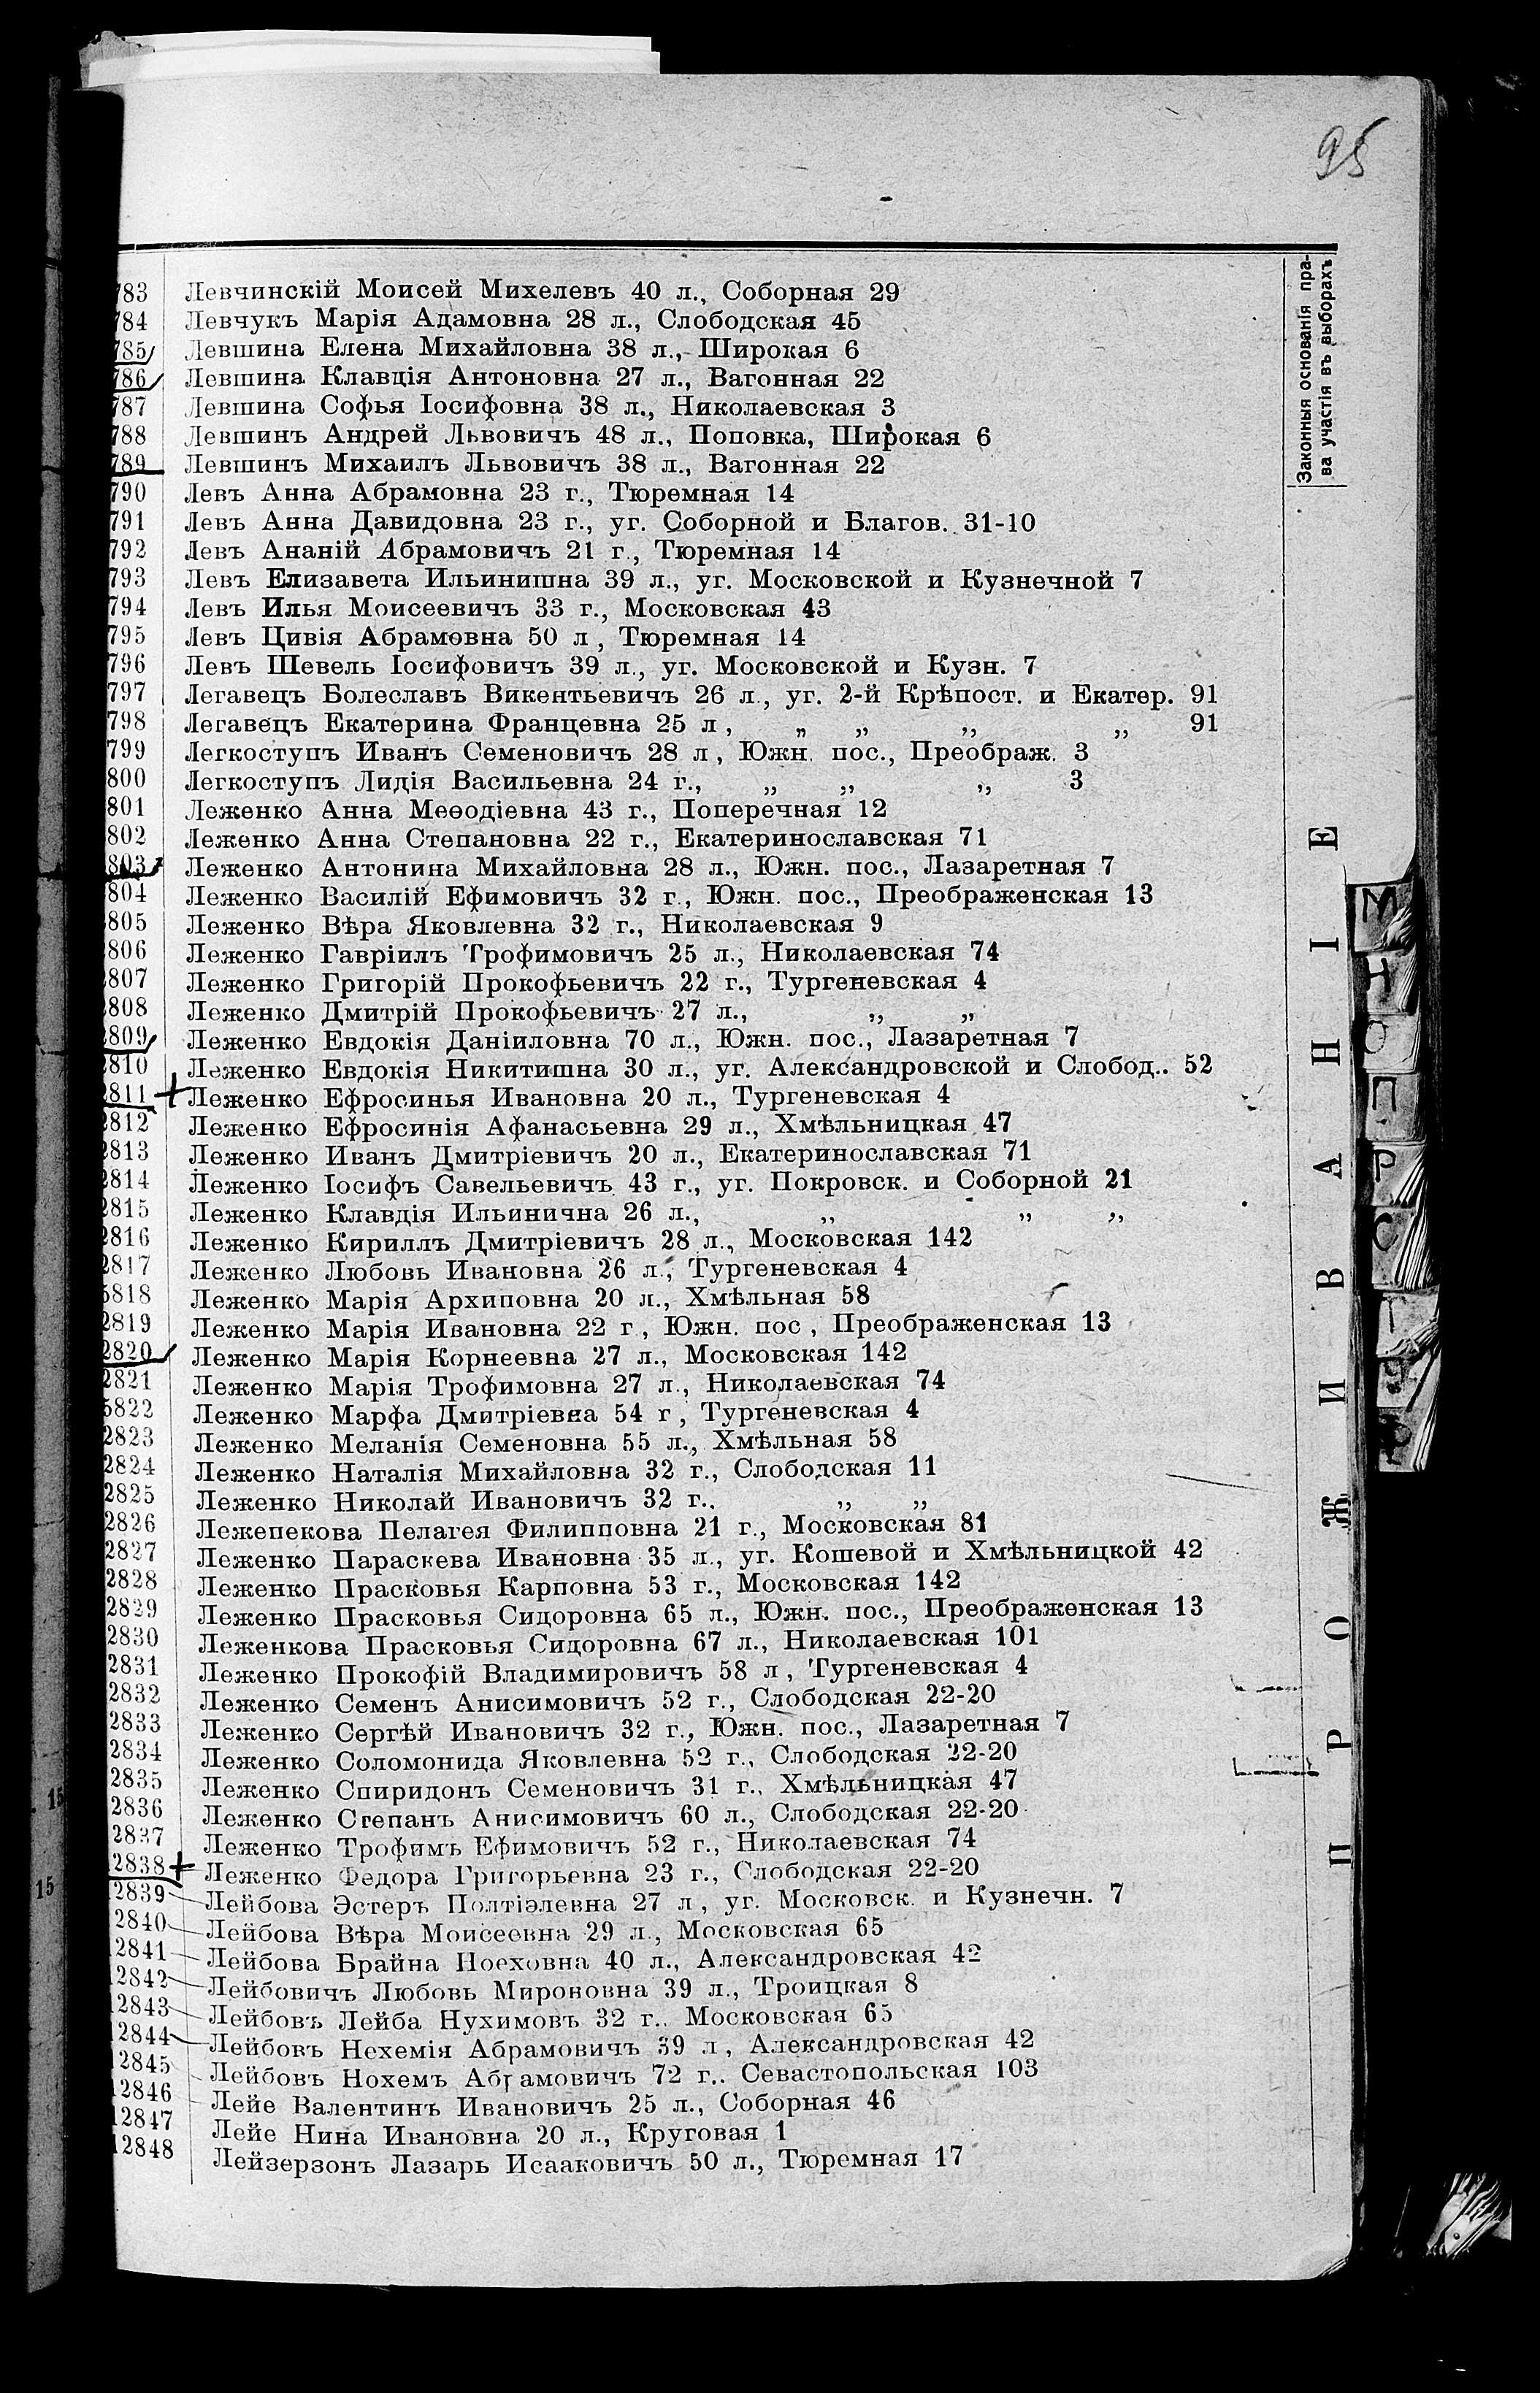 95
Законныя основанія пра-
ва участія въ выборахъ
ПРОЖИВАНІЕ
783 Левчинскій Моисей Михелевъ 40 л., Соборная 29
784 Левчукъ Марія Адамовна 28 л., Слободская 45
785 Левшина Елена Михайловна 38 л., Широкая 6
786 Левшина Клавдія Антоновна 27 л., Вагонная 22
787 Левшина Софья Іосифовна 38 л., Николаевская 3
788 Левшинъ Андрей Львовичъ 48 л., Поповка, Широкая 6
789 Левшинъ Михаилъ Львовичъ 38 л., Вагонная 22
790 Левъ Анна Абрамовна 23 г., Тюремная 14
791 Левъ Анна Давидовна 23 г., уг. Соборной и Благов. 31-10
792 Левъ Ананій Абрамовичъ 21 г., Тюремная 14
793 Левъ Елизавета Ильинишна 39 л., уг. Московской и Кузнечной 7
794 Левъ Илья Моисеевичъ 33 г., Московская 43
795 Левъ Цивія Абрамовна 50 л, Тюремная 14
796 Левъ Шевель Іосифовичъ 39 л., уг. Московской и Кузн. 7
797 Легавецъ Болеславъ Викентьевичъ 26 л., уг. 2-й Крѣпост. и Екатер. 91
798 Легавецъ Екатерина Францевна 25 л, „ „ „ „ 91
799 Легкоступъ Иванъ Семеновичъ 28 л, Южн. пос., Преображ. 3
800 Легкоступъ Лидія Васильевна 24 г., „ „ „ 3
801 Леженко Анна Меѳодіевна 43 г., Поперечная 12
802 Леженко Анна Степановна 22 г., Екатеринославская 71
803 Леженко Антонина Михайловна 28 л., Южн. пос., Лазаретная 7
804 Леженко Василій Ефимовичъ 32 г., Южн. пос., Преображенская 13
805 Леженко Вѣра Яковлевна 32 г., Николаевская 9
806 Леженко Гавріилъ Трофимовичъ 25 л., Николаевская 74
807 Леженко Григорій Прокофьевичъ 22 г., Тургеневская 4
808 Леженко Дмитрій Прокофьевичъ 27 л., „ „
2809 Леженко Евдокія Даніиловна 70 л., Южн. пос., Лазаретная 7
2810 Леженко Евдокія Никитишна 30 л., уг. Александровской и Слобод.. 52
2811 Леженко Ефросинья Ивановна 20 л., Тургеневская 4
2812 Леженко Ефросинія Афанасьевна 29 л., Хмѣльницкая 47
2813 Леженко Иванъ Дмитріевичъ 20 л., Екатеринославская 71
2814 Леженко Іосифъ Савельевичъ 43 г., уг. Покровск. и Соборной 21
2815 Леженко Клавдія Ильинична 26 л., „ „ „
2816 Леженко Кириллъ Дмитріевичъ 28 л., Московская 142
2817 Леженко Любовь Ивановна 26 л., Тургеневская 4
5818 Леженко Марія Архиповна 20 л., Хмѣльная 58
2819 Леженко Марія Ивановна 22 г, Южн. пос, Преображенская 13
2820 Леженко Марія Корнеевна 27 л., Московская 142
2821 Леженко Марія Трофимовна 27 л., Николаевская 74
5822 Леженко Марфа Дмитріевна 54 г, Тургеневская 4
2823 Леженко Меланія Семеновна 55 л., Хмѣльная 58
2824 Леженко Наталія Михайловна 32 г., Слободская 11
2825 Леженко Николай Ивановичъ 32 г., „ „
2826 Лежепекова Пелагея Филипповна 21 г., Московская 81
2827 Леженко Параскева Ивановна 35 л., уг. Кошевой и Хмѣльницкой 42
2828 Леженко Прасковья Карповна 53 г., Московская 142
2829 Леженко Прасковья Сидоровна 65 л., Южн. пос., Преображенская 13
2830 Леженкова Прасковья Сидоровна 67 л., Николаевская 101
2831 Леженко Прокофій Владимировичъ 58 л, Тургеневская 4
2832 Леженко Семенъ Анисимовичъ 52 г., Слободская 22-20
2833 Леженко Сергѣй Ивановичъ 32 г., Южн. пос., Лазаретная 7
2834 Леженко Соломонида Яковлевна 52 г., Слободская 22-20
2835 Леженко Спиридонъ Семеновичъ 31 г., Хмѣльницкая 47
2836 Леженко Степанъ Анисимовичъ 60 л., Слободская 22-20
2837 Леженко Трофимъ Ефимовичъ 52 г., Николаевская 74
12838 Леженко Федора Григорьевна 23 г., Слободская 22-20
12839 Лейбова Эстеръ Полтіэлевна 27 л, уг. Московск. и Кузнечн. 7
12840 Лейбова Вѣра Моисеевна 29 л., Московская 65
12841 Лейбова Брайна Ноеховна 40 л., Александровская 42
12842 Лейбовичъ Любовь Мироновна 39 л., Троицкая 8
12843 Лейбовъ Лейба Нухимовъ 32 г., Московская 65
12844 Лейбовъ Нехемія Абрамовичъ 39 л, Александровская 42
12845 Лейбовъ Нохемъ Абрамовичъ 72 г., Севастопольская 103
12846 Лейе Валентинъ Ивановичъ 25 л., Соборная 46
12847 Лейе Нина Ивановна 20 л., Круговая 1
12848 Лейзерзонъ Лазарь Исааковичъ 50 л., Тюремная 17
М
Н
О
П
Р
С
Т
15
15